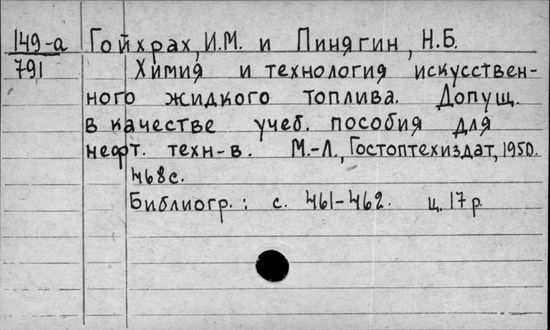 149-а Гойхрах, И.М. и Пинягин, Н.Б.
791 Химия и технология искусствен-
ного жидкого топлива. Допущ.
в качестве учеб. пособия для
нефт. техн-в. М.-Л., Гостоптехиздат, 1950.
468 с.
Библиогр.: с. 461-462. ц. 17 р.